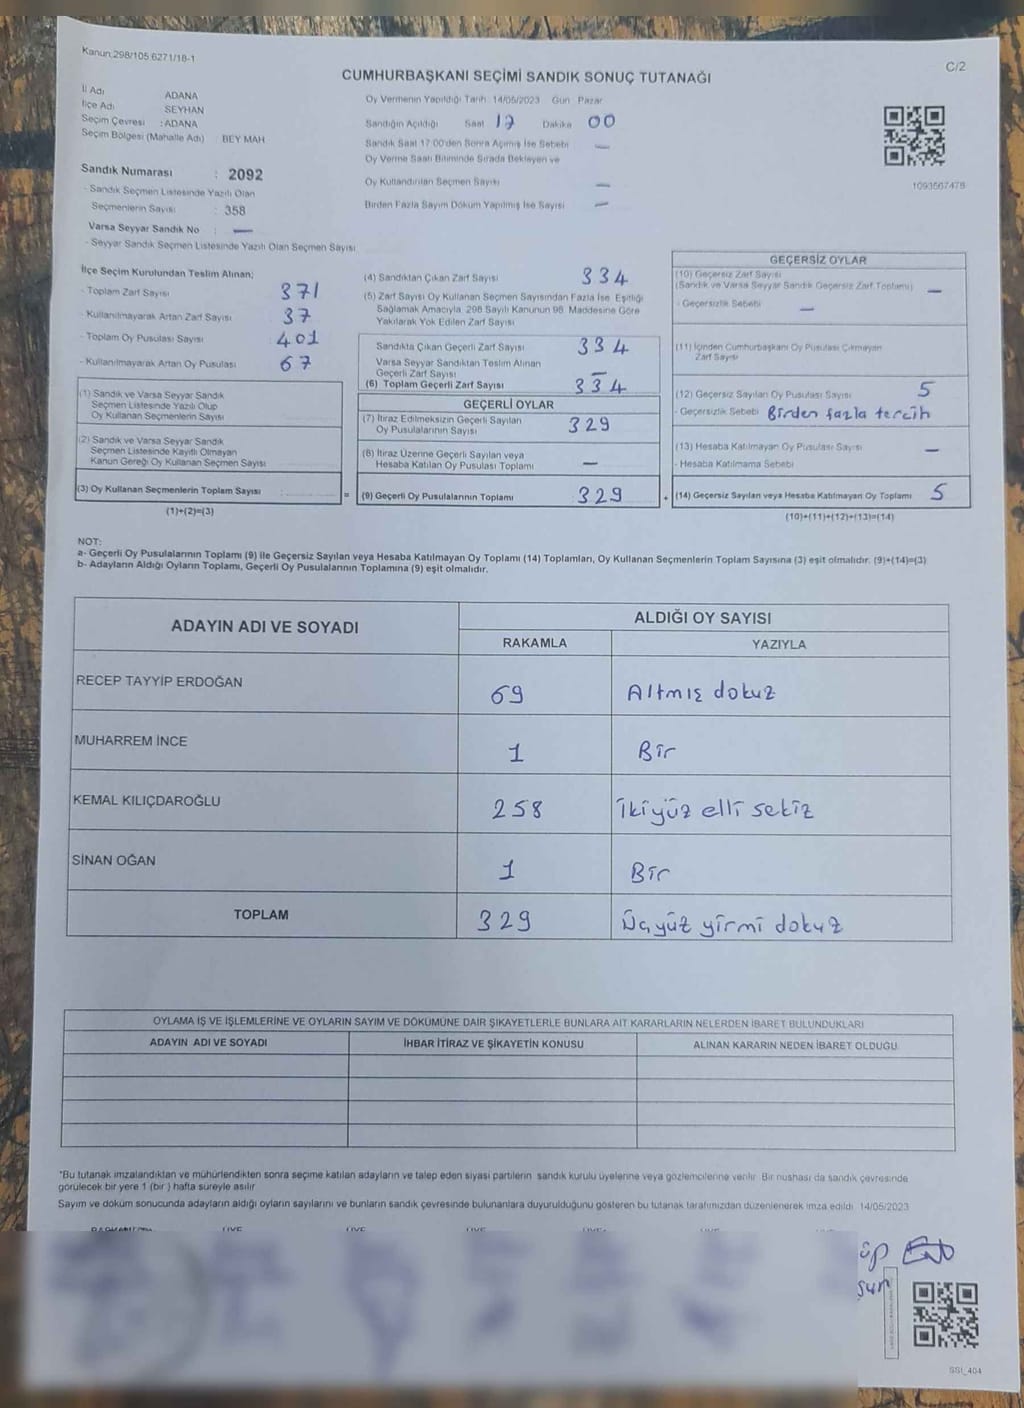 Kanun:298/105 6271/18-1
C/2
CUMHURBAŞKANI SEÇİMİ SANDIK SONUÇ TUTANAĞI
İl Adı ADANA
İlçe Adı SEYHAN
Seçim Çevresi : ADANA
Seçim Bölgesi (Mahalle Adı) : BEY MAH
Sandık Numarası : 2092
- Sandık Seçmen Listesinde Yazılı Olan
Seçmenlerin Sayısı : 358
Varsa Seyyar Sandık No : —
- Seyyar Sandık Seçmen Listesinde Yazılı Olan Seçmen Sayısı
Oy Vermenin Yapıldığı Tarih: 14/05/2023 Gün Pazar
Sandığın Açıldığı Saat 17 Dakika 00
Sandık Saat 17:00'den Sonra Açılmış İse Sebebi —
Oy Verme Saati Bitiminde Sırada Bekleyen ve
Oy Kullandırılan Seçmen Sayısı —
Birden Fazla Sayım Döküm Yapılmış İse Sayısı —
1093567478
İlçe Seçim Kurulundan Teslim Alınan;
- Toplam Zarf Sayısı : 371
- Kullanılmayarak Artan Zarf Sayısı : 37
- Toplam Oy Pusulası Sayısı : 401
- Kullanılmayarak Artan Oy Pusulası : 67
(1) Sandık ve Varsa Seyyar Sandık
Seçmen Listesinde Yazılı Olup
Oy Kullanan Seçmenlerin Sayısı
(2) Sandık ve Varsa Seyyar Sandık
Seçmen Listesinde Kayıtlı Olmayan
Kanun Gereği Oy Kullanan Seçmen Sayısı
(3) Oy Kullanan Seçmenlerin Toplam Sayısı :
(1)+(2)=(3)
(4) Sandıktan Çıkan Zarf Sayısı 334
(5) Zarf Sayısı Oy Kullanan Seçmen Sayısından Fazla İse, Eşitliği
Sağlamak Amacıyla 298 Sayılı Kanunun 98. Maddesine Göre
Yakılarak Yok Edilen Zarf Sayısı
Sandıkta Çıkan Geçerli Zarf Sayısı 334
Varsa Seyyar Sandıktan Teslim Alınan
Geçerli Zarf Sayısı —
(6) Toplam Geçerli Zarf Sayısı 334
GEÇERLİ OYLAR
(7) İtiraz Edilmeksizin Geçerli Sayılan
Oy Pusulalarının Sayısı 329
(8) İtiraz Üzerine Geçerli Sayılan veya
Hesaba Katılan Oy Pusulası Toplamı —
= (9) Geçerli Oy Pusulalarının Toplamı 329
GEÇERSİZ OYLAR
(10) Geçersiz Zarf Sayısı
(Sandık ve Varsa Seyyar Sandık Geçersiz Zarf Toplamı) —
- Geçersizlik Sebebi —
(11) İçinden Cumhurbaşkanı Oy Pusulası Çıkmayan
Zarf Sayısı
(12) Geçersiz Sayılan Oy Pusulası Sayısı 5
- Geçersizlik Sebebi Birden fazla tercih
(13) Hesaba Katılmayan Oy Pusulası Sayısı —
- Hesaba Katılmama Sebebi
+ (14) Geçersiz Sayılan veya Hesaba Katılmayan Oy Toplamı 5
(10)+(11)+(12)+(13)=(14)
NOT:
a- Geçerli Oy Pusulalarının Toplamı (9) ile Geçersiz Sayılan veya Hesaba Katılmayan Oy Toplamı (14) Toplamları, Oy Kullanan Seçmenlerin Toplam Sayısına (3) eşit olmalıdır. (9)+(14)=(3)
b- Adayların Aldığı Oyların Toplamı, Geçerli Oy Pusulalarının Toplamına (9) eşit olmalıdır.
ADAYIN ADI VE SOYADI ALDIĞI OY SAYISI
RAKAMLA YAZIYLA
RECEP TAYYİP ERDOĞAN 69 Altmış dokuz
MUHARREM İNCE 1 Bir
KEMAL KILIÇDAROĞLU 258 İkiyüz elli sekiz
SİNAN OĞAN 1 Bir
TOPLAM 329 Üçyüz yirmi dokuz
OYLAMA İŞ VE İŞLEMLERİNE VE OYLARIN SAYIM VE DÖKÜMÜNE DAİR ŞİKAYETLERLE BUNLARA AİT KARARLARIN NELERDEN İBARET BULUNDUKLARI
ADAYIN ADI VE SOYADI İHBAR İTİRAZ VE ŞİKAYETİN KONUSU ALINAN KARARIN NEDEN İBARET OLDUĞU
*Bu tutanak imzalandıktan ve mühürlendikten sonra seçime katılan adayların ve talep eden siyasi partilerin sandık kurulu üyelerine veya gözlemcilerine verilir. Bir nüshası da sandık çevresinde
görülecek bir yere 1 (bir ) hafta süreyle asılır
Sayım ve döküm sonucunda adayların aldığı oyların sayılarını ve bunların sandık çevresinde bulunanlara duyurulduğunu gösteren bu tutanak tarafımızdan düzenlenerek imza edildi. 14/05/2023
SSI_404